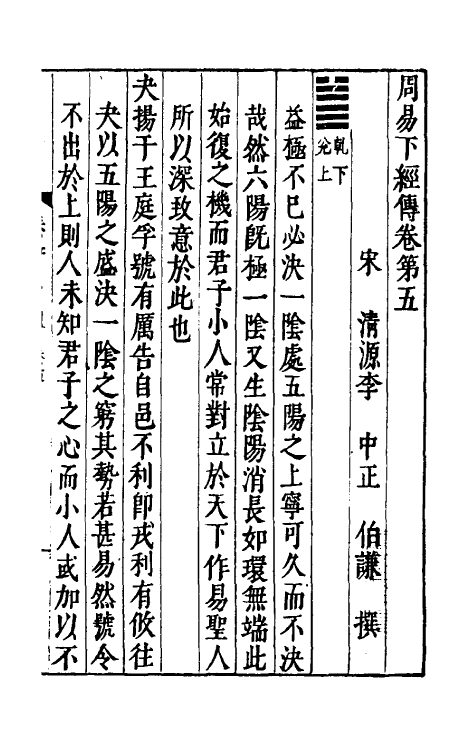 周易下經傳卷第五
宋　清源李　中正　伯謙　撰
䷪乹下兌上
益極不已必決一陰處五陽之上寧可久而不決
哉然六陽旣極一陰又生陰陽消長如環無端此
始復之機而君子小人常對立於天下作易聖人
所以深致意於此也
夬揚于王庭孚號有厲告自邑不利卽戎利有攸往
夬以五陽之盛決一陰之窮其勢若甚易然號令
不出於上則人未知君子之心而小人或加以不